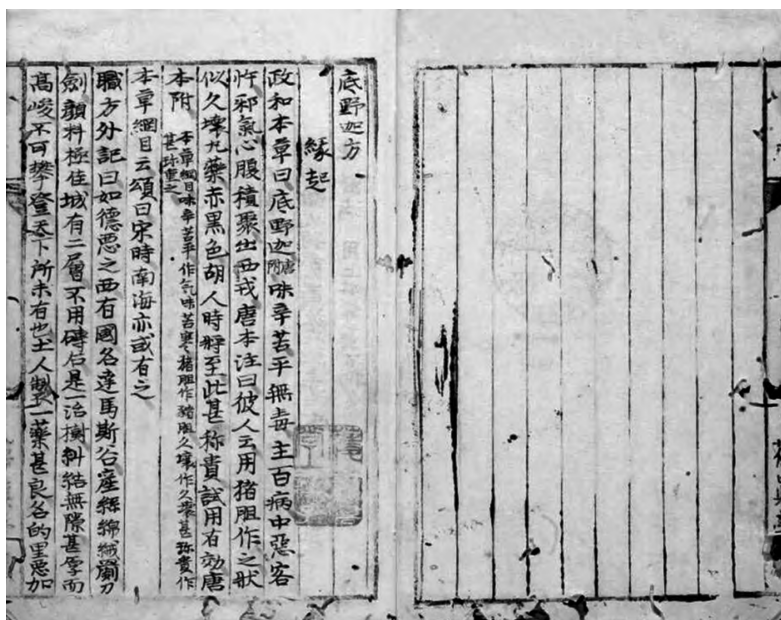 底野迦方
緣起
政和本草曰底野迦唐附味辛苦平無毒主百病中惡客
忤邪氣心腹積聚出西戎唐本注曰彼人云用猪胆作之狀
似久壞丸藥赤黑色胡人時將至此甚稱貴試用有効唐
本附本草綱目味辛苦平作气味苦寒猪胆作豬胆久壞作久壞甚珎貴作
甚珎重之
本草綱目云頌曰宋時南海亦或有之
職方外記曰如德悪之西有國名達馬斯谷産絲綿絨罽刀
劍顔料極佳城有二層不用磚石是一活樹糾結無隙甚厚而
高峻不可攀登天下所未有也土人製一藥甚良名的里悪加